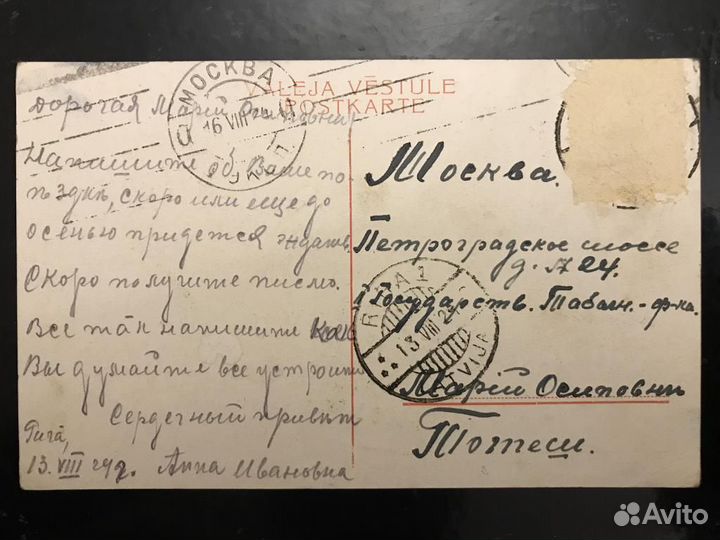 VALEJA VĒSTULE
POSTKARTE
МОСКВА
16 VIII
Дорогая Марія Осиповна!
Напишите об Ваше по-
ѣздкѣ, скоро или еще до
осенью придется ждать.
Скоро получите письмо.
Все так напишите как
Вы думайте все устроит
Сердечный привѣт
Рига,
13. VIII 24 г. Анна Ивановна
Москва.
Петроградское шоссе
д. № 24.
I Государств. Табачн. ф-ка.
RIGA 2
13 VIII 24
LATVIJA
Марій Осиповнѣ
Тотеш.
Avito